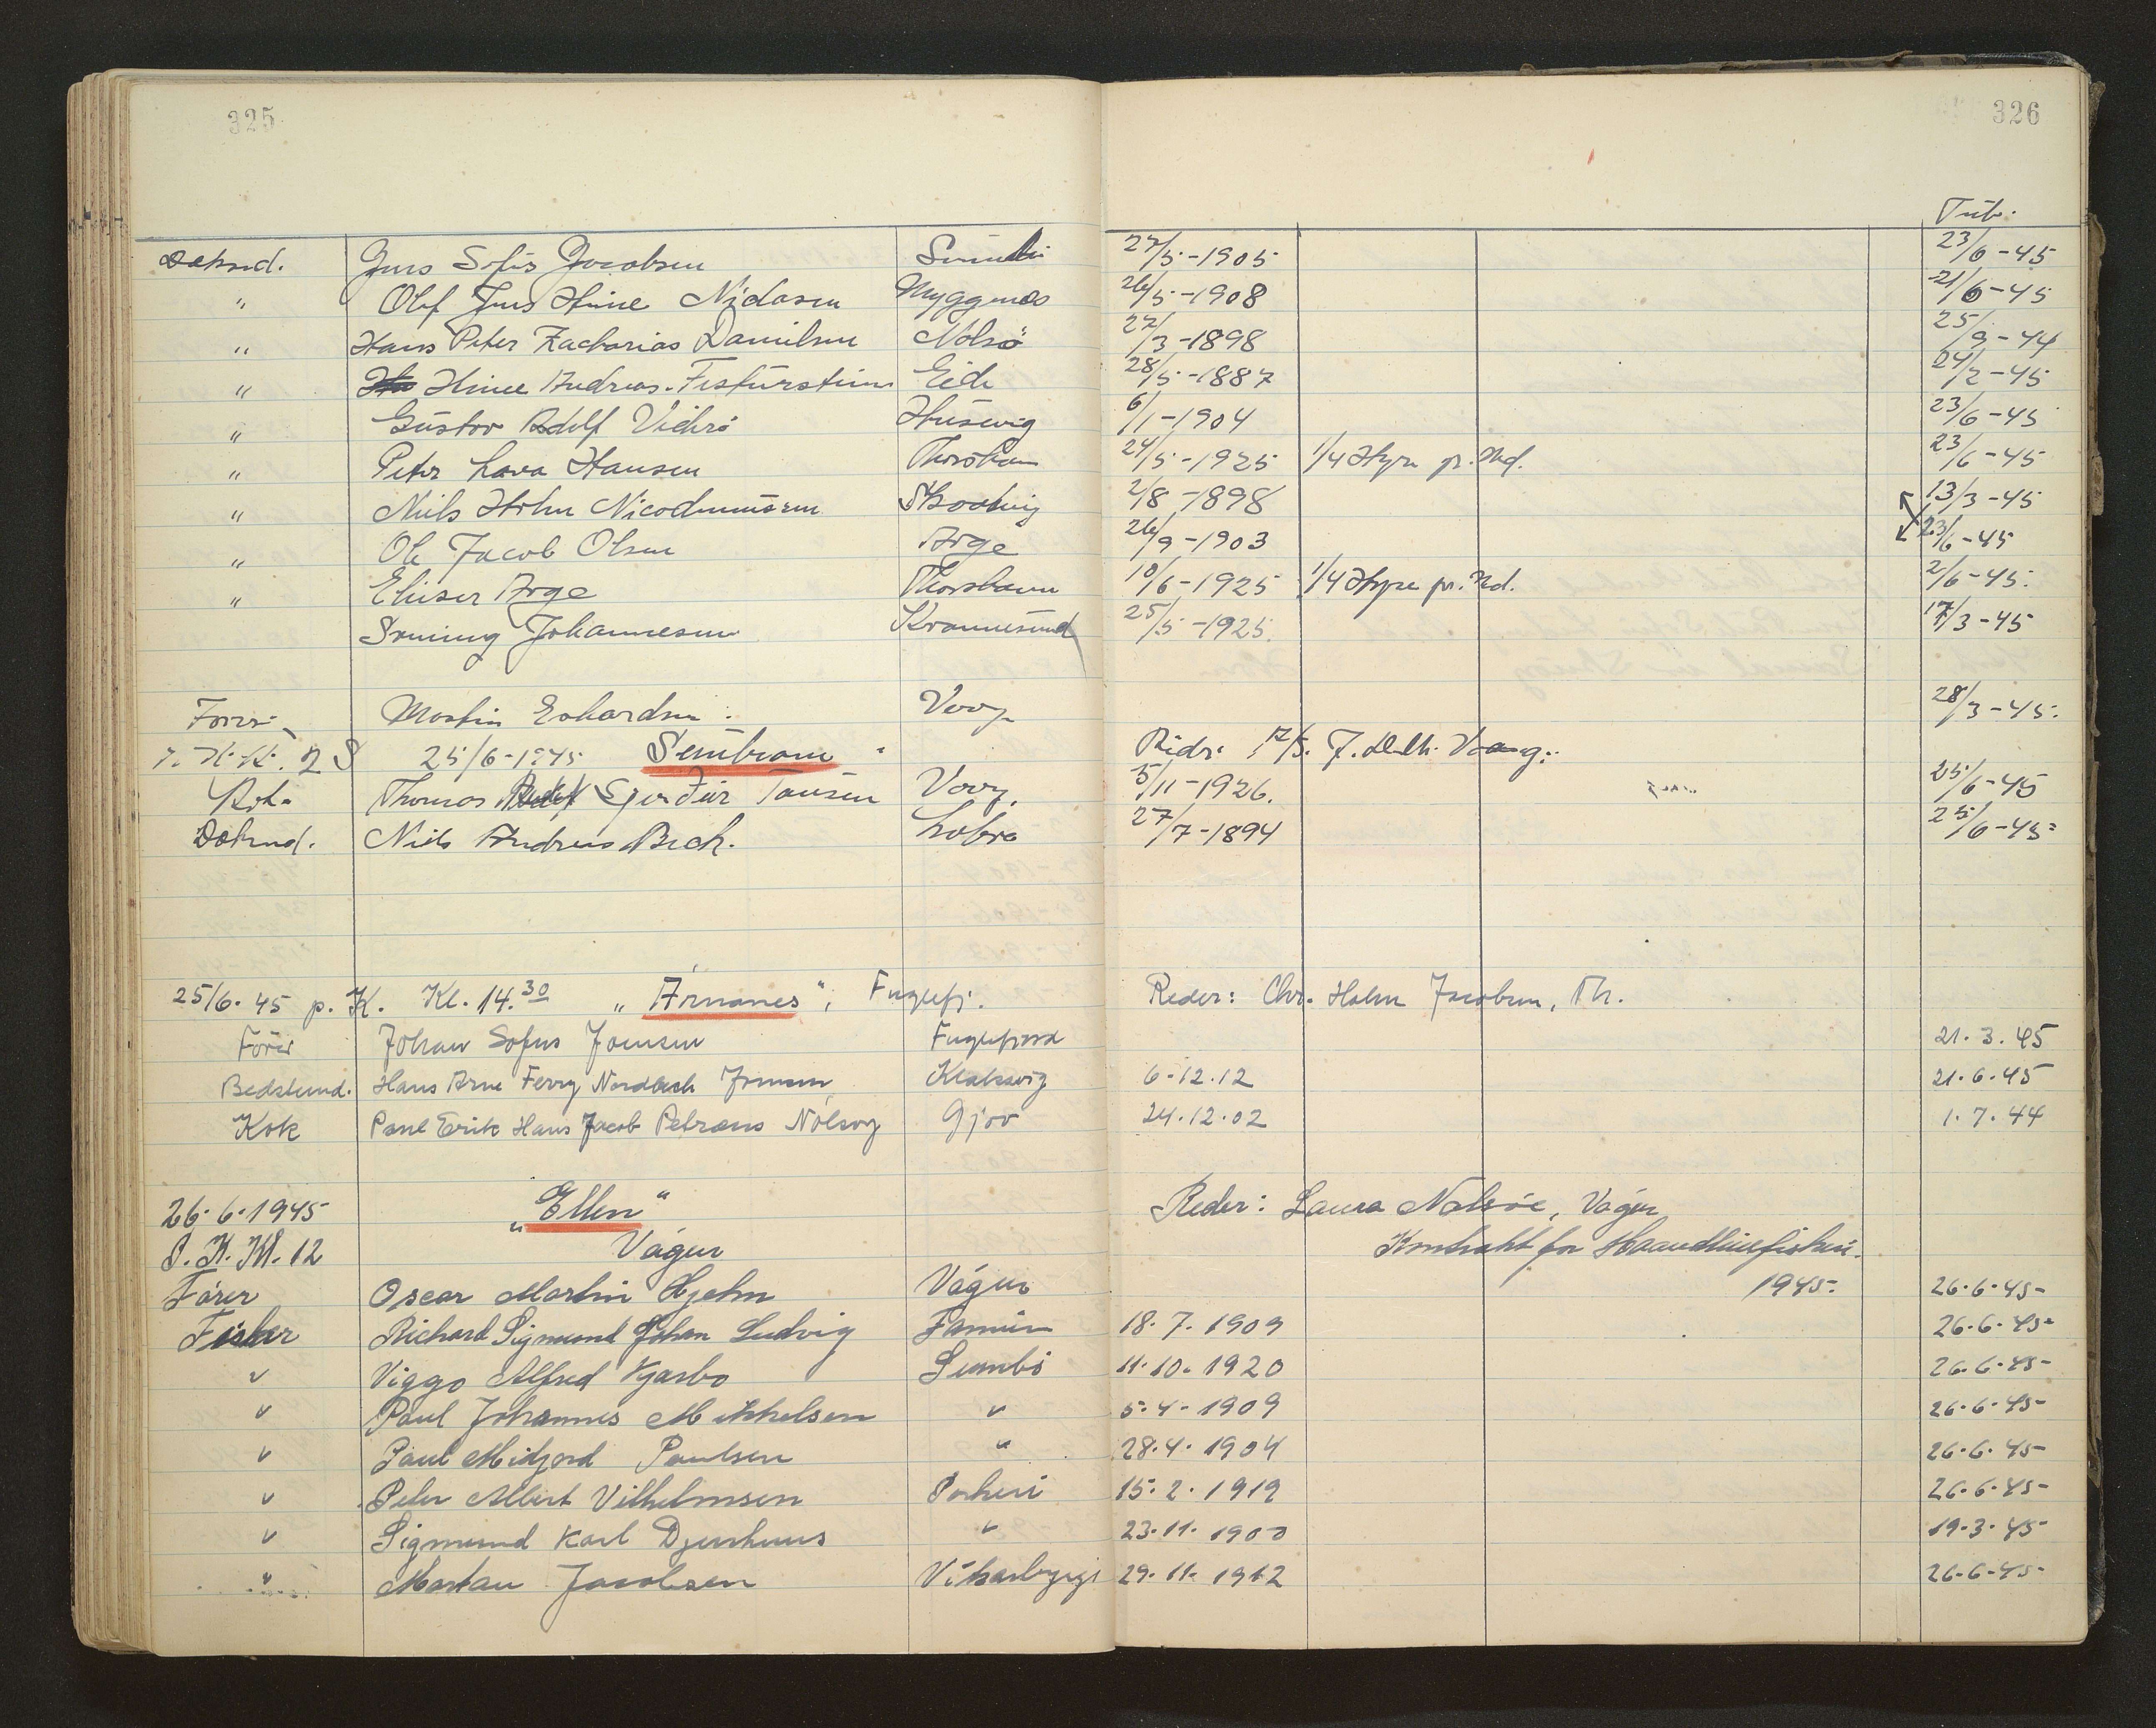 325
326
Tilb.
Dæksd. Jens Sofus Jacobsen Sumbö 27/5-1905 23/6-45
" Olef Jens Hine Niclasen Myggenæs 26/5-1908 21/6-45
" Hans Peter Zacharias Danielsen Nolsö 27/3-1898 25/9-44
" Hinee Andreas Fisfürsteim Eide 28/5-1887 24/2-45
" Gustav Adolf Viderö Husevig 6/1-1904 23/6-45
" Peter Lava Hansen Thorshavn 24/5-1925 1/4 Hyre pr. Md. 23/6-45
" Niels John Nicodemussen Skopevig 2/8-1898 13/3-45
" Ole Jacob Olsen Arge 26/9-1903 23/6-45
" Elieser Arge Thorshavn 10/6-1925 1/4 Hyre pr. Md. 2/6-45
Srening Johannesen Kvannesund 25/5-1925 17/3-45
Fører Martin Eohardsen Vaag 28/3-45
25/6-1945 Sembran Reder: J. Dahl Vaag.
Thomas Sjurdur Tausen Vaag. 5/11-1926. 25/6-45
Dæksd. Niels Andreas Bech. Lobra 27/7-1894 25/6-45
25/6.45 p. K. Kl. 14.30 „Árnanes", Fuglefj. Reder: Chr. Holm Jacobsen, Th.
Förer Johan Sofus Joensen Fuglefjord 21.3.45
Bedstemd. Hans Arne Ferry Nordbech Joensen Klaksvig 6-12.12 21.6.45
Kok Poul Erik Hans Jacob Petræus Nólsoy Gjov 24.12.02 1.7.44
26.6.1945 „Ellen" Reder: Laura Nolsöe, Vágur
P. K. Kl. 12 Vágur Kontrakt for Haandlinefiskeri.
1945.
Fører Oscar Martin Hjelm Vágur 26.6.45-
Fisker Richard Sigmund Johan Ludvig Famien 18.7.1909 26.6.45-
" Viggo Alfred Kjærbo Sumbö 11.10.1920 26.6.45-
" Paul Johannes Mikkelsen " 5.4.1909 26.6.45-
" Paul Midjord Poulsen " 28.4.1904 26.6.45-
" Peter Albert Vilhelmsen Porkeri 15.2.1919 26.6.45-
" Sigmund Karl Djurhuus " 23.11.1900 19.3.45-
" Mortan Jacobsen Vikarbyrgi 29.11.1912 26.6.45-